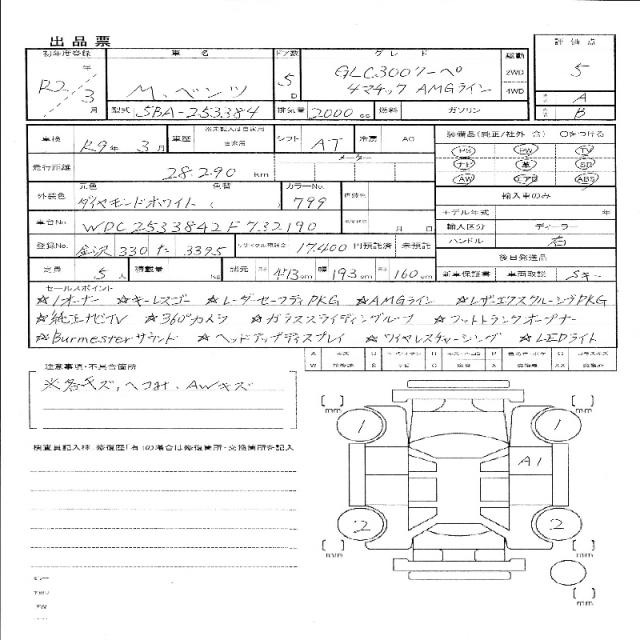 出品票
初年度登録 車名 ドア数 グレード 駆動 評価点
R2年 3月 M.ベンツ 5D GLC300クーペ 2WD 5
4マチック AMGライン 4WD
型式 5BA-253384 排気量 2000cc 燃料 ガソリン A
B
車検 R9年 3月 車歴 自家用 シフト AT 冷房 AC 装備品(純正/社外 含) ○をつける
PS PW TV
走行距離 28,290 km メーター ナビ 革 SR
AW エアB ABS
外装色 元色 ダイヤモンドホワイト 色替 ( カラーNo. 799 輸入車のみ
モデル年式 年
車台No. WDC2533842F732190 月 日 輸入区分 ディーラー
登録No. 金沢 330 た 3395 リサイクル預託金 17,400 円預託済 未預託 ハンドル 右
後日発送品
定員 5人 積載量 kg 諸元 長さ 473cm 幅 193cm 高さ 160cm 新車保証書 車両取説 Sキー
セールスポイント
☆1オーナー ☆キーレスゴー ☆レーダーセーフティPKG ☆AMGライン ☆レザーエクスクルーシブPKG
☆純正ナビTV ☆360°カメラ ☆ガラススライディングルーフ ☆フットトランクオープナー
☆Burmesterサウンド ☆ヘッドアップディスプレイ ☆ワイヤレスチャージング ☆LEDライト
注意事項・不具合箇所
※各キズ、ヘコミ、AWキズ
mm mm
1 1
検査員記入欄 修復歴「有」の場合は修復箇所・交換箇所を記入
A1
2 2
mm mm
mm